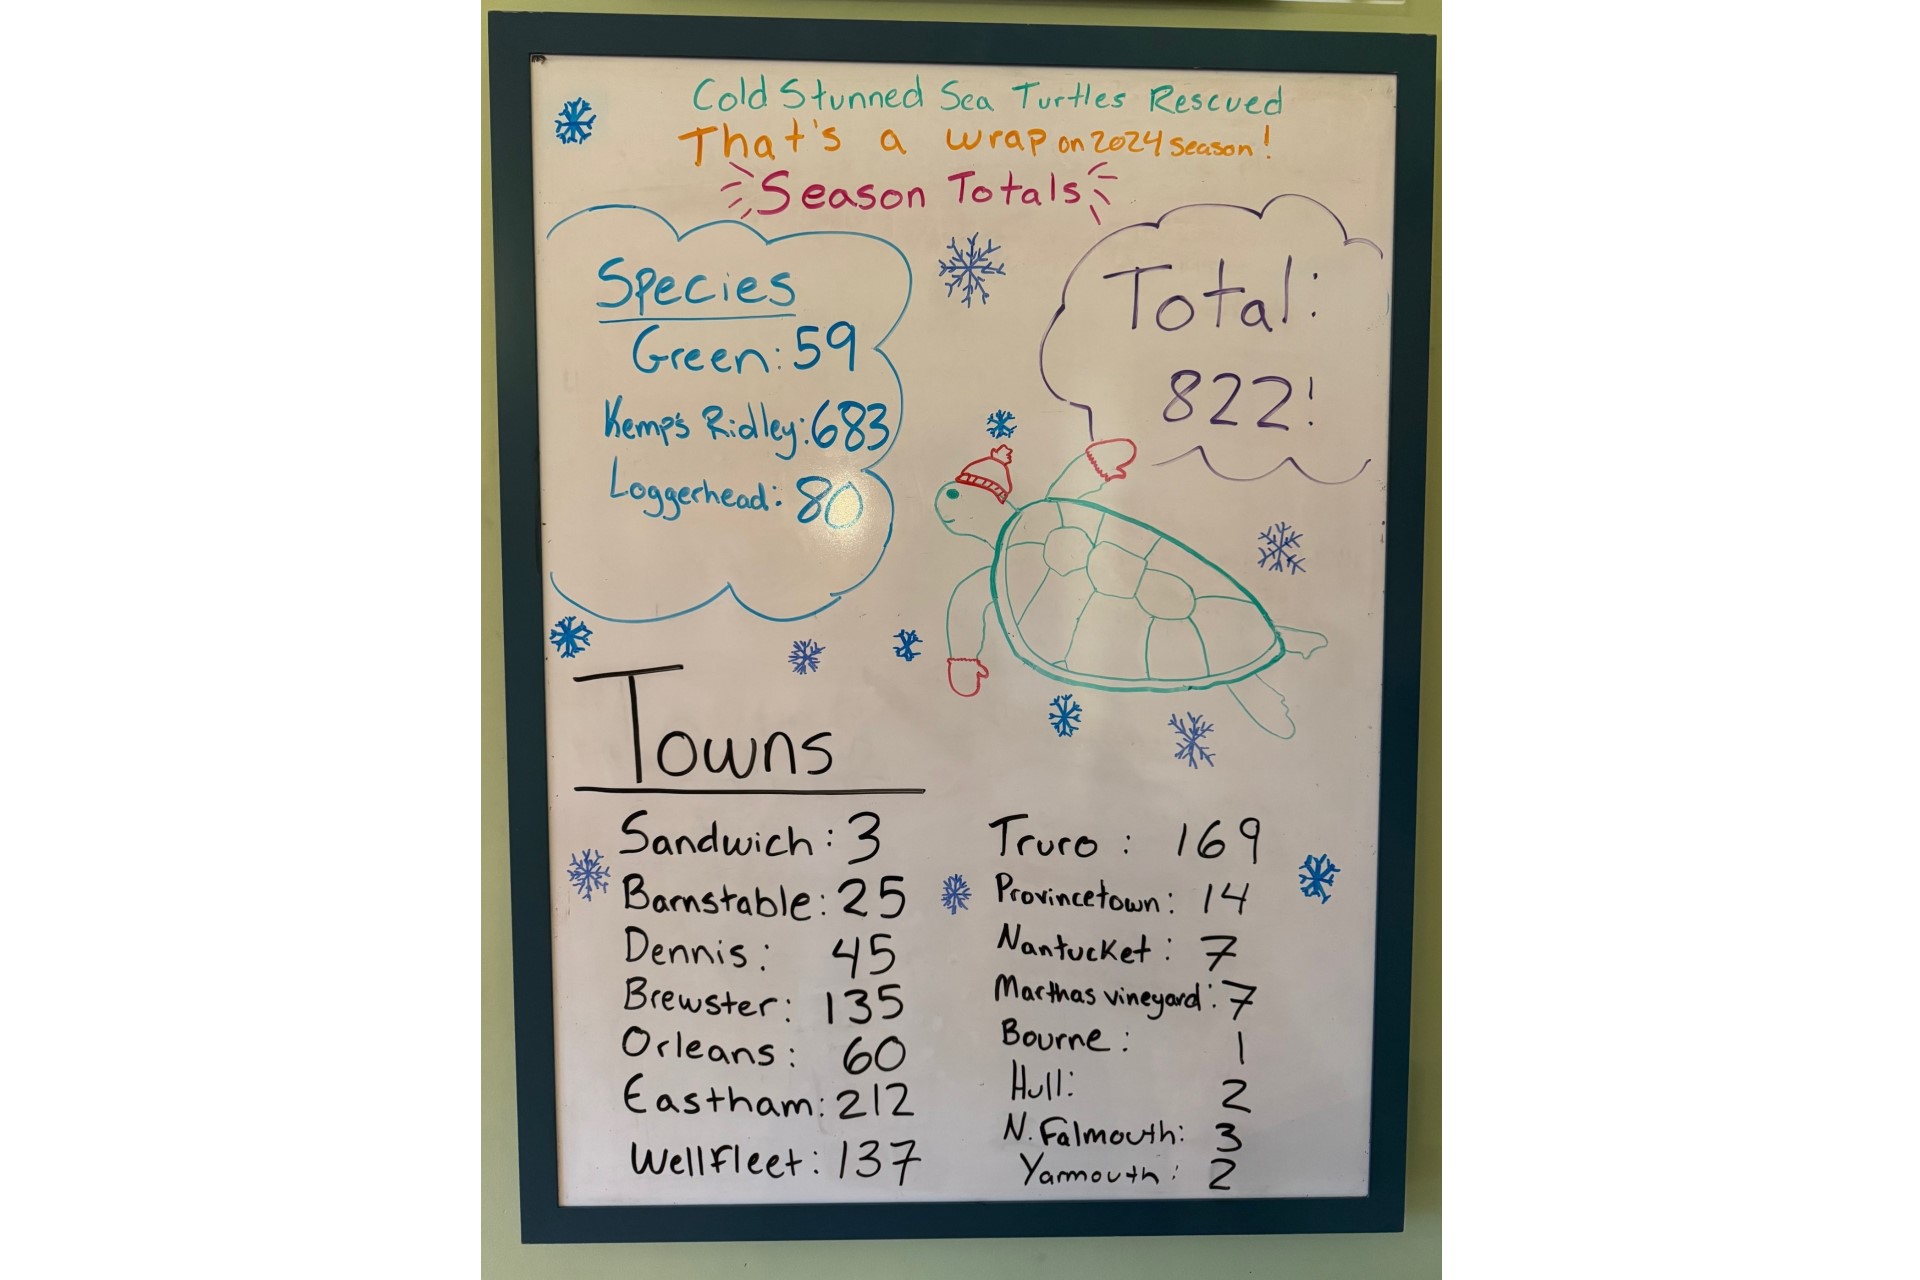 Cold Stunned Sea Turtles Rescued
That's a wrap on 2024 season!
Season Totals
Species
Green: 59
Kemp's Ridley: 683
Loggerhead: 80
Total:
822!
Towns
Sandwich: 3
Barnstable: 25
Dennis: 45
Brewster: 135
Orleans: 60
Eastham: 212
Wellfleet: 137
Truro: 169
Provincetown: 14
Nantucket: 7
Marthas vineyard: 7
Bourne: 1
Hull: 2
N. Falmouth: 3
Yarmouth: 2